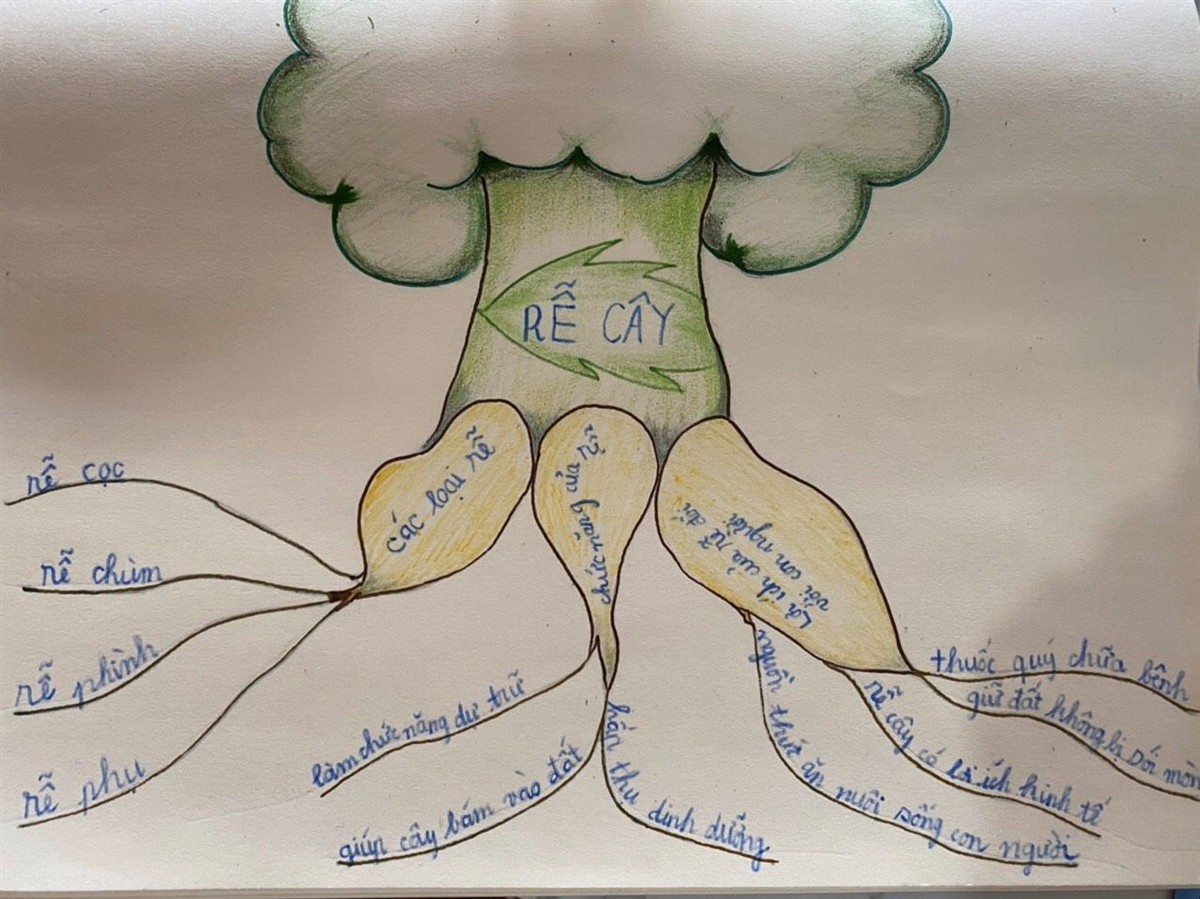 RỄ CÂY
các loại rễ
rễ cọc
rễ chùm
rễ phình
rễ phụ
chức năng của rễ
làm chức năng dự trữ
giúp cây bám vào đất
hấp thu dinh dưỡng
Lợi ích của rễ đối
với con người
nguồn thức ăn nuôi sống con người
rễ cây có lợi ích kinh tế
giữ đất không bị sói mòn
thuốc quý chữa bệnh